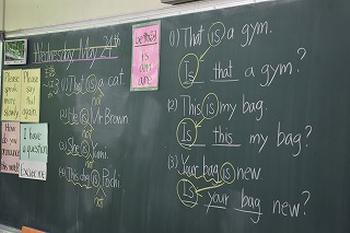 Wednesday May 24th
(1) That is a cat.
not
(2) He is Mr Brown
not
(3) She is Yumi.
not
(4) This dog is Pochi.
not
Please speak more slowly
Please say that again
How do you pronounce this word?
I have a question
Excuse me
is
am
are
(1) That is a gym.
Is that a gym?
(2) This is my bag.
Is this my bag?
(3) Your bag is new.
Is your bag new?